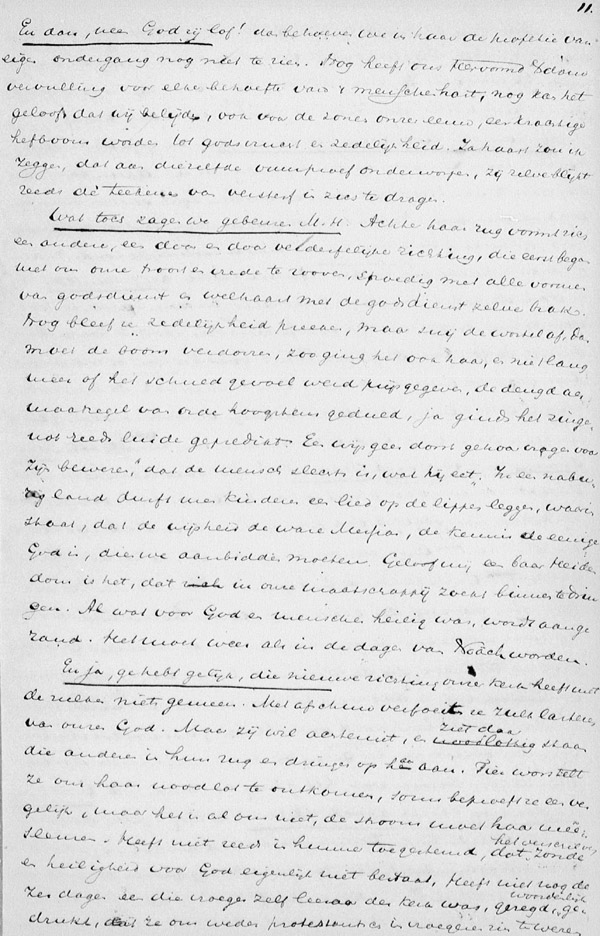 11.
En dan, neen God zij lof! dan behoeven we in haar de profetie van
eigen ondergang nog niet te zien. Nog heeft ons Hervormd
vervulling voor elke behoefte van 't menschenhart, nog kan het
geloof dat wij belijden, ook voor de zonen onzer eeuw, een krachtige
hefboom worden tot godsvrucht en zedelijkheid. Ja haast zou ik
zeggen, dat aan diezelfde vuurproef onderworpen, zij zelve blijkt
reeds de teekenen van versterf in zich te dragen.
Wat toch zagen we gebeuren M. H. Achter haar rug vormt zich
een andere, een door en door verderfelijke richting, die eerst began
met ons onze troost en vrede te rooven, spoedig met alle vormen
van godsdienst en welhaast met de godsdienst zelve brak.
Nog bleef ze zedelijkheid preeken, maar snij de wortel af, dan
moet de boom verdorren, zoo ging het ook haar, en niet lang
meer of het schuldgevoel werd prijs gegeven, de deugd als
maatregel van orde hoogstens geduld, ja ginds het zinge-
not reeds luide gepredikt. Een wijsgeer dorst
beweren, dat de mensch slechts is, wat hij eet. In een nabu-
rig land durft men kinderen een lied op de lippen leggen, waarin
staat, dat de vrijheid de ware Messias, de kennis de eenige
God is, dien we aanbidden moeten. Geloof mij een baar Heiden-
dom is het, dat in onze maatschappij zoekt binnen te drin-
gen. Al wat voor God en menschen heilig was, wordt aange-
rand. Het moet weer als in de dagen van Noach worden.
En ja, ge hebt gelijk, die nieuwe richting onzer kerk heeft met
de zulken niets gemeen. Met afschuw verfoeit ze zulk lasteren
van onzen God. Maar zij wil achteruit, en ziet daar staan
die anderen in hun rug en dringen op haar aan. Fier worstelt
ze om haar noodlot te ontkomen, soms beproeft ze een ver-
gelijk, maar het is al om niet, de stroom moet haar mee-
slepen. Heeft niet reeds in hunne toegestemd, dat het verschil van zonde
en heiligheid voor God eigenlijk niet bestaat, Heeft niet nog de-
zer dagen een die vroeger zelf leeraar der kerk was, woordelijk gezegd, ge-
drukt, dat ze om weder protestantsch in vroegeren zin te weren